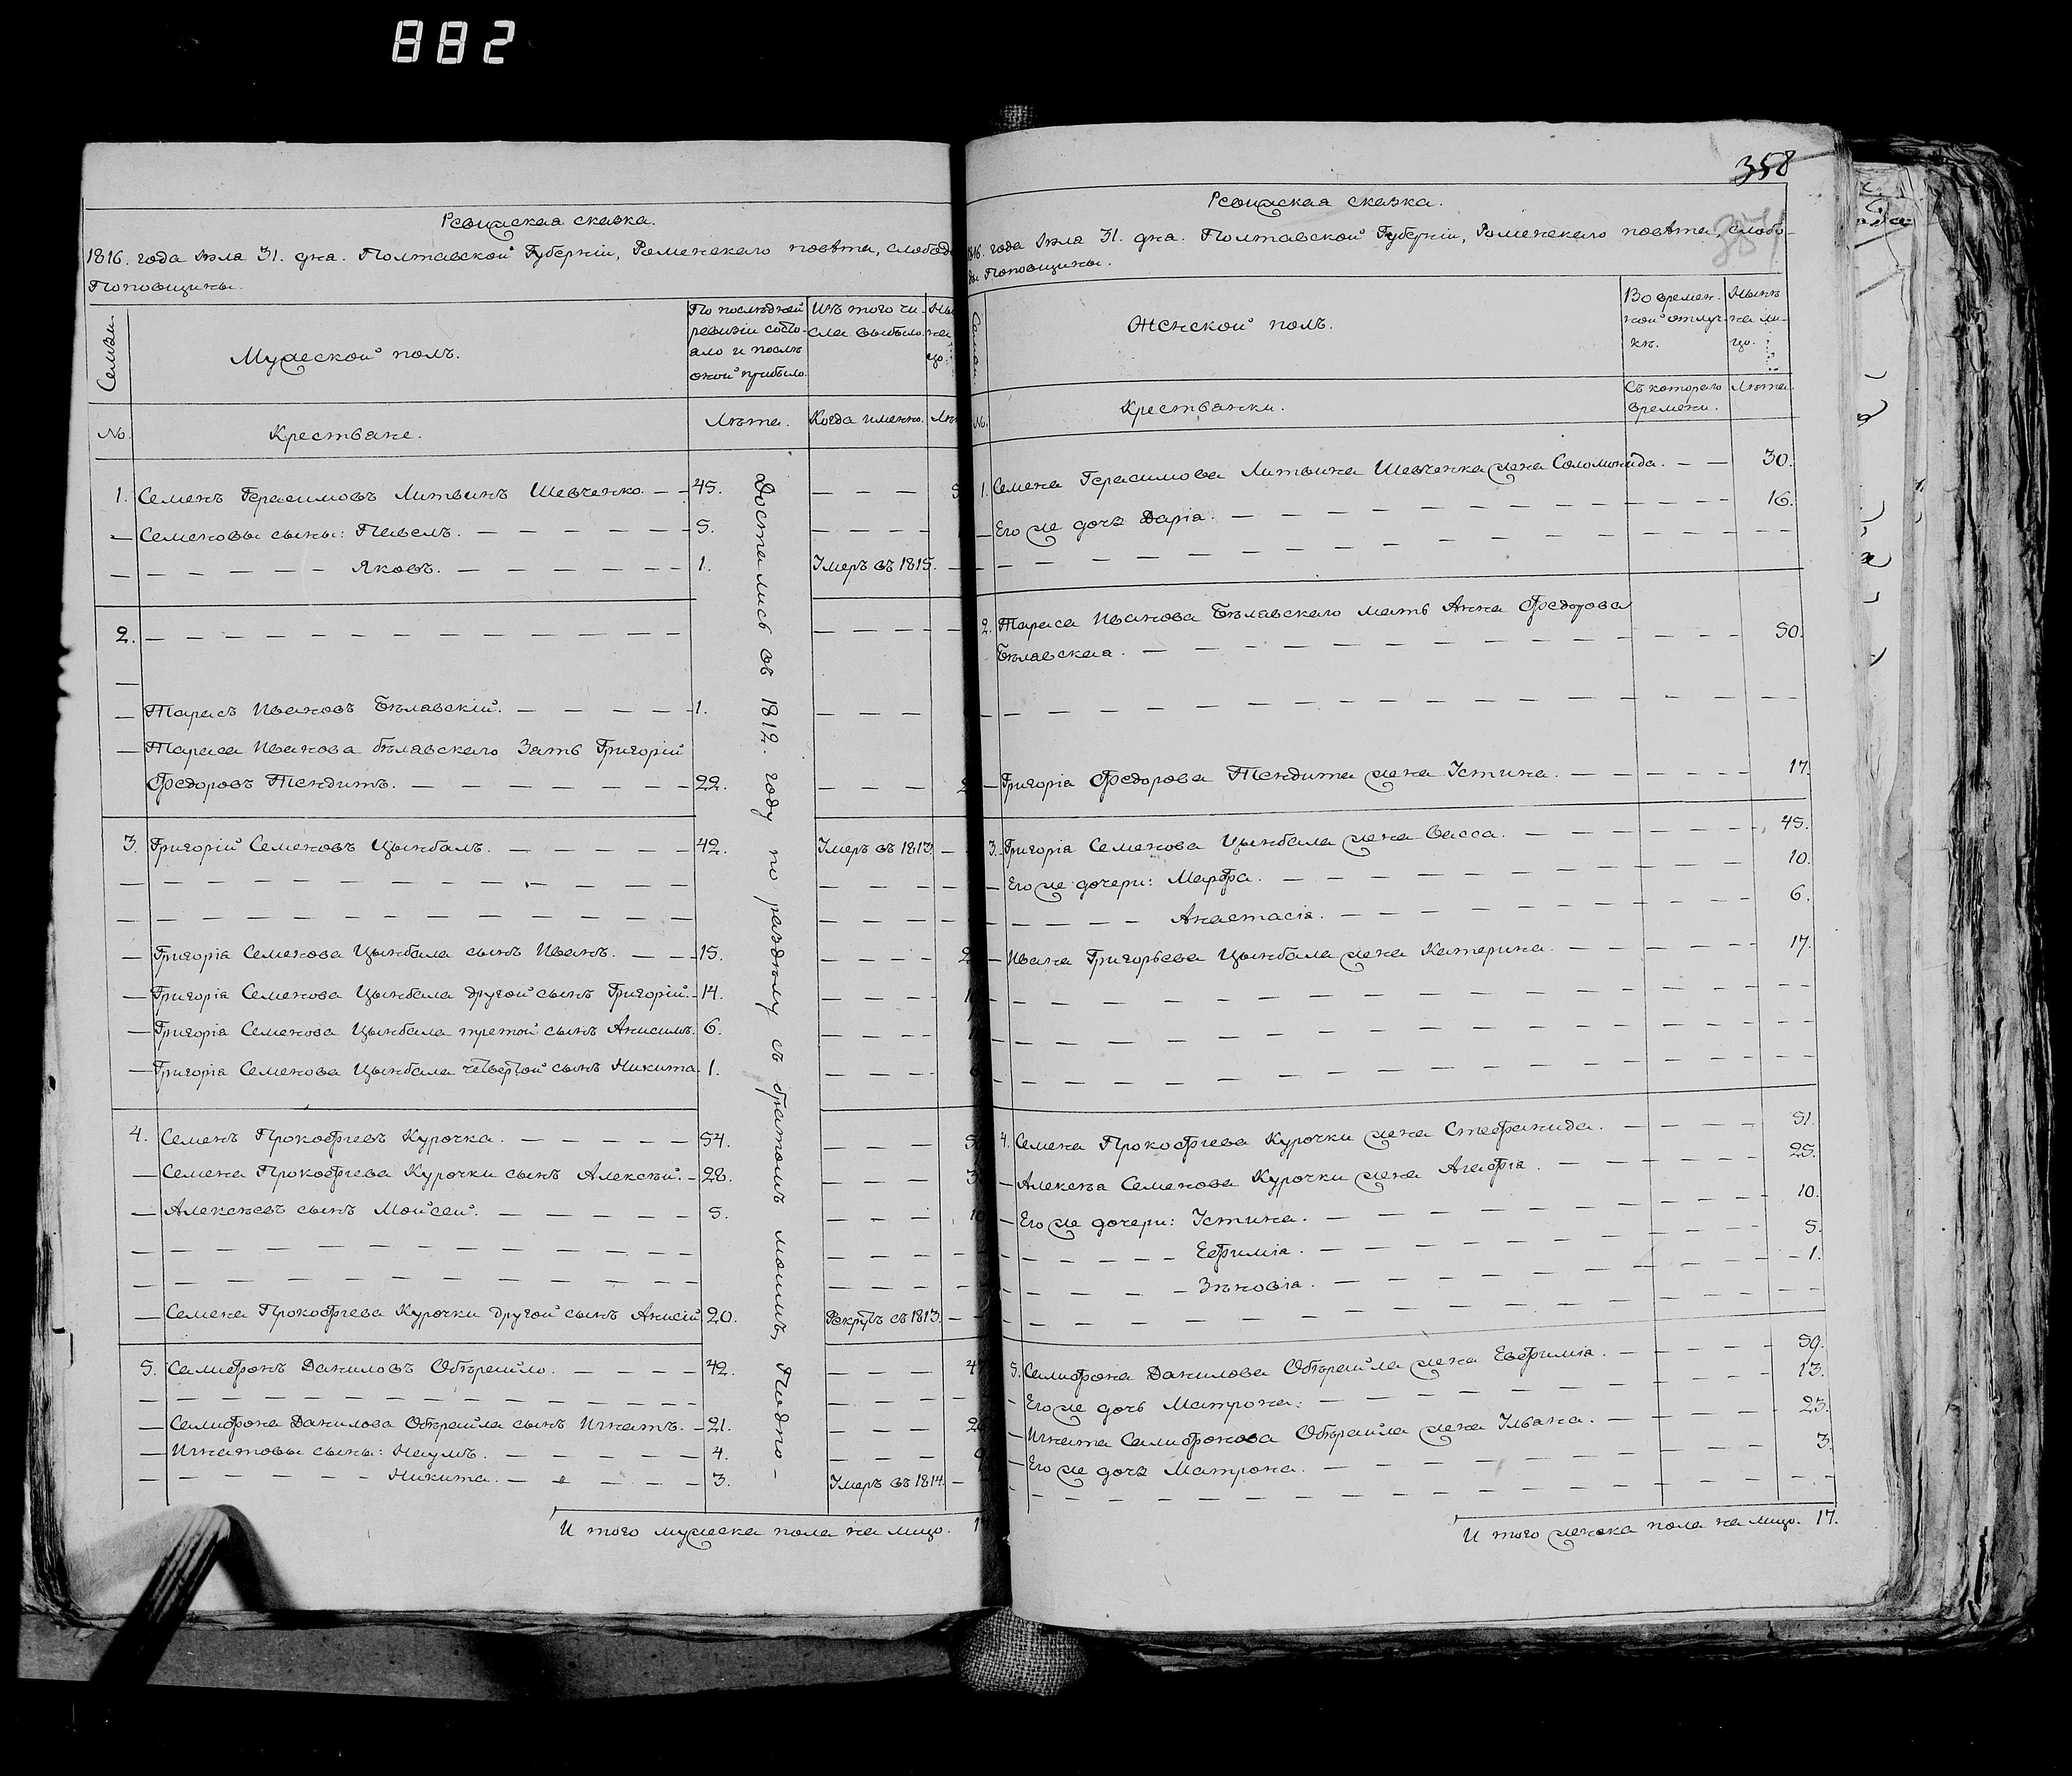 882
Ревизская сказка.
1816. года Июля 31. дня. Полтавской Губерніи, Роменского повѣта, слободы
Поповщины.
Семьи.
Мужеской полъ.
По последней
ревизіи состо-
яло и послѣ
оной прибыло.
Изъ того чи-
сла выбыло.
№.
Крестьяне.
Лѣта.
Когда именно.
1. Семенъ Герасимовъ Литвинъ Шевченко. 45.
Семеновы сыны: Павелъ. 5.
Яковъ. 1. Умеръ въ 1815.
2.
Тарасъ Ивановъ Бѣлавскій. 1.
Тараса Иванова Бѣлавского Зять Григорій
Федоровъ Тендитъ. 22.
3. Григорій Семеновъ Цымбалъ. 42. Умеръ въ 1813.
Григорія Семенова Цымбала сынъ Иванъ. 15.
Григорія Семенова Цымбала другой сынъ Григорій. 14.
Григорія Семенова Цымбала третой сынъ Анисимъ. 6.
Григорія Семенова Цымбала четвертой сынъ Никита. 1.
4. Семенъ Прокофіевъ Курочка. 54.
Семена Прокофіева Курочки сынъ Алексѣй. 28.
Алексѣевъ сынъ Мойсей. 5.
Семена Прокофіева Курочки другой сынъ Анисій 20. Рекрутъ съ 1813.
5. Самифонъ Даниловъ Обѣрайло. 42.
Самифона Данилова Обѣрайла сынъ Игнатъ. 21.
Игнатовы сыны: Наумъ. 4.
Никита. 3. Умеръ въ 1814.
Достались въ 1812. году по раздѣлу съ братомъ моимъ, Подпо-
И того мужеска пола на лицо.
358
Ревизская сказка.
1816. года Июля 31. дня. Полтавской Губерніи, Роменского повѣта, слобо-
ды Поповщины.
Женской полъ.
Во времен-
ной отлуч-
кѣ.
Нынѣ
на ли-
цо.
№.
Крестьянки.
Съ которого
времени.
Лѣта.
1. Семена Герасимова Литвина Шевченка жена Соломонида. 30.
Его же дочь Дарія. 16.
2. Тараса Иванова Бѣлавского мать Анна Федорова
Бѣлавская. 50.
Григорія Федорова Тендита жена Устина. 17.
3. Григорія Семенова Цымбала жена Васса. 45.
Его же дочери: Марфа. 10.
Анастасія. 6.
Ивана Григорьева Цымбала жена Катерина. 17.
4. Семена Прокофіева Курочки жена Стефанида. 51.
Алексѣя Семенова Курочки жена Агафія. 25.
Его же дочери: Устина. 10.
Ефимія. 5.
Зѣновія. 1.
5. Самифона Данилова Обѣрайла жена Евфимія. 50.
Его же дочь Матрона. 13.
Игната Самифонова Обѣрайла жена Ульяна. 23.
Его же дочь Матрона. 3.
И того женска пола на лицо. 17.